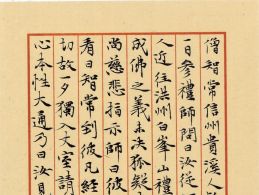 僧智常信州貴溪人
一日參禮師問曰汝從
人近往洪州白峯山禮
成佛之義未決狐疑
尚慈悲指示師曰彼
看曰智常到彼凡經
切故一夕獨入丈室請
心本性大通乃曰汝見